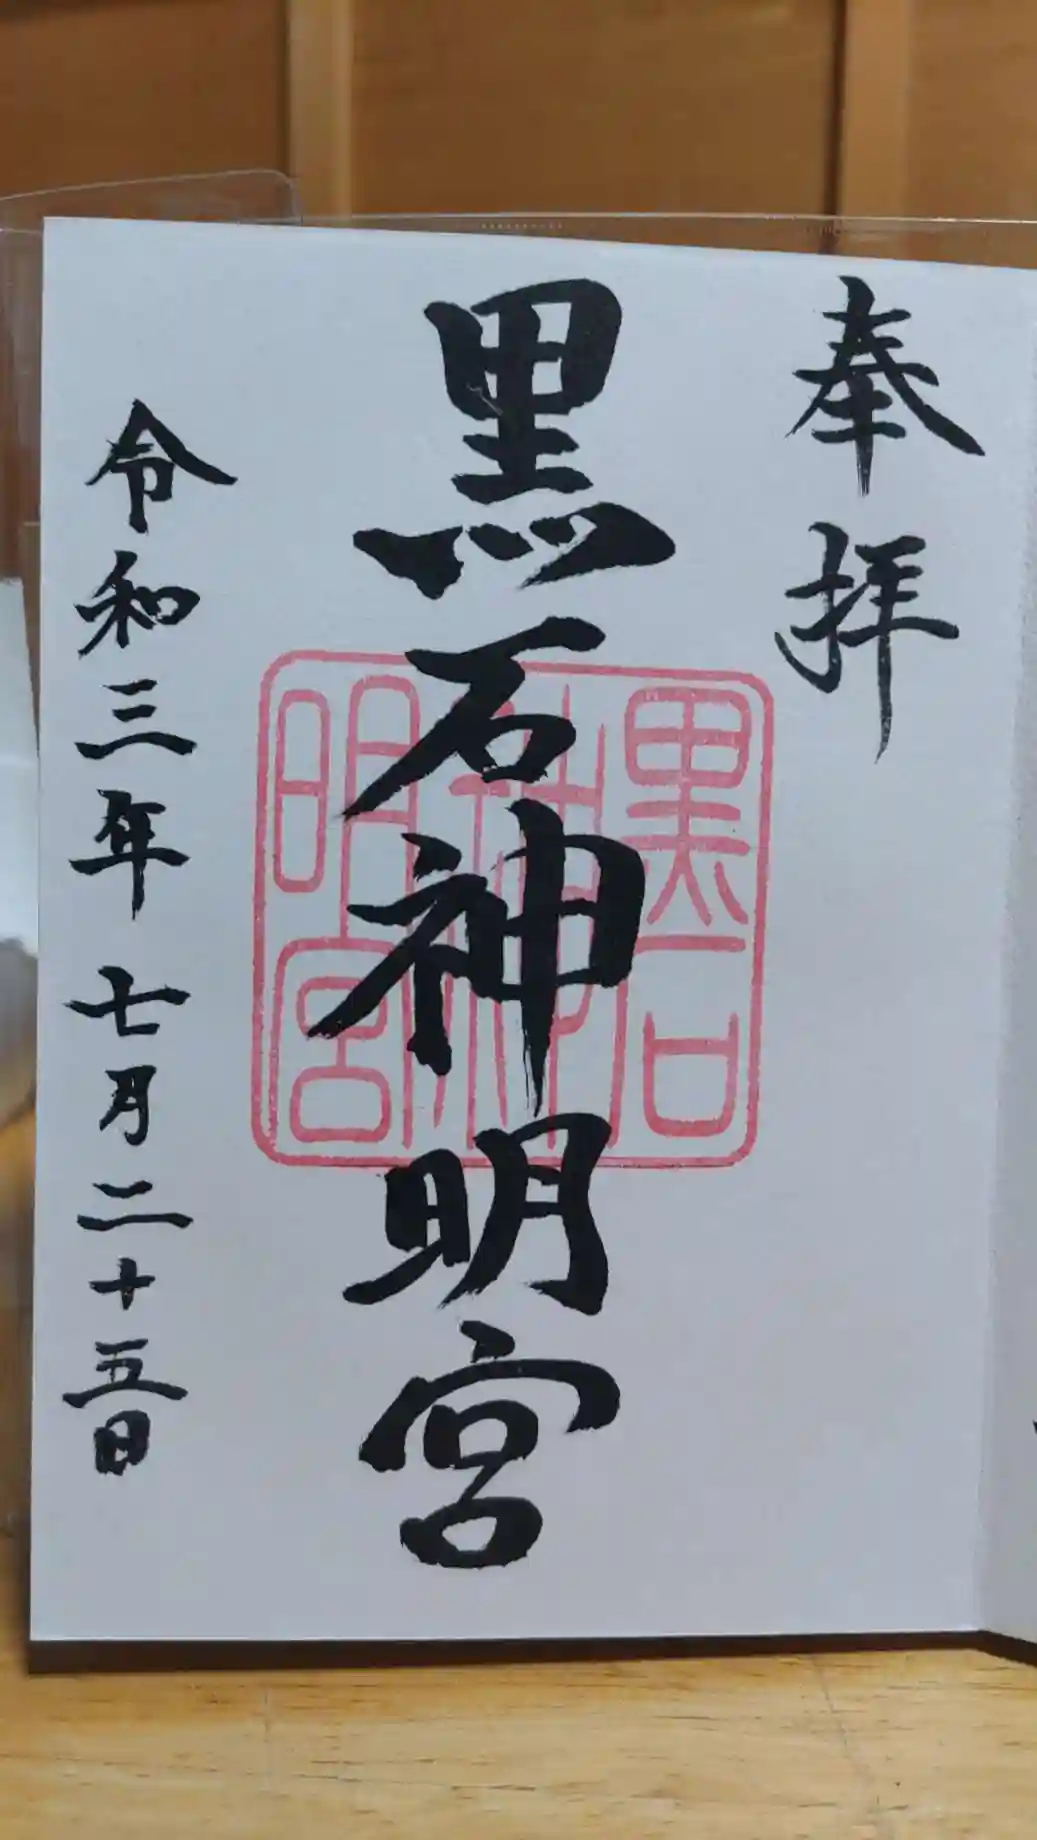 奉拝
黒石神明宮
黒石
神明宮
令和三年 七月二十五日